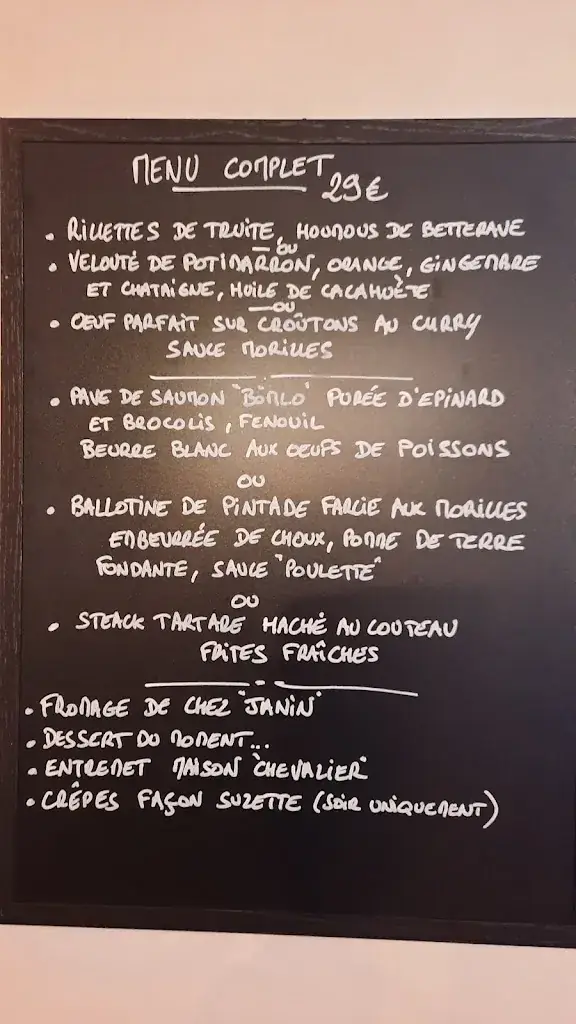 MENU COMPLET
29€
• RILLETTES DE TRUITE, HOUMOUS DE BETTERAVE
OU
• VELOUTÉ DE POTIMARRON, ORANGE, GINGEMBRE
ET CHATAIGNE, HUILE DE CACAHUÈTE
OU
• ŒUF PARFAIT SUR CROÛTONS AU CURRY
SAUCE MORILLES
• PAVE DE SAUMON "BÖMLO" PURÉE D'EPINARD
ET BROCOLIS, FENOUIL
BEURRE BLANC AUX OEUFS DE POISSONS
OU
• BALLOTINE DE PINTADE FARCIE AUX MORILLES
EMBEURRÉE DE CHOUX, POMME DE TERRE
FONDANTE, SAUCE "POULETTE"
OU
• STEACK TARTARE HACHÉ AU COUTEAU
FRITES FRAÎCHES
• FROMAGE DE CHEZ "JANIN"
• DESSERT DU MOMENT...
• ENTREMET MAISON "CHEVALIER"
• CRÊPES FAÇON SUZETTE (SOIR UNIQUEMENT)